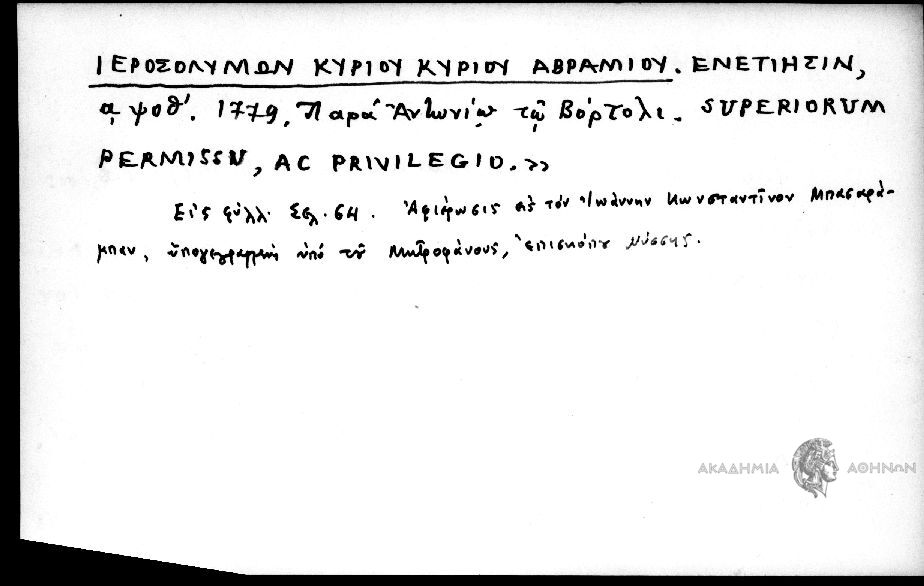 ΙΕΡΟΣΟΛΥΜΩΝ ΚΥΡΙΟΥ ΚΥΡΙΟΥ ΑΒΡΑΜΙΟΥ. ΕΝΕΤΙΗΣΙΝ,
͵αψοθʹ. 1779, Παρὰ Ἀντωνίῳ τῷ Βόρτολι. SUPERIORUM
PERMISSU, AC PRIVILEGIO.»
Εἰς φύλλ. Σελ. 64. Ἀφιέρωσις εἰς τὸν Ἰωάννην Κωνσταντῖνον Μπασαρά-
μπαν, ὑπογεγραμμένη ὑπὸ τοῦ Μητροφάνους, Ἐπισκόπου Νύσσης.
ΑΚΑΔΗΜΙΑ ΑΘΗΝΩΝ